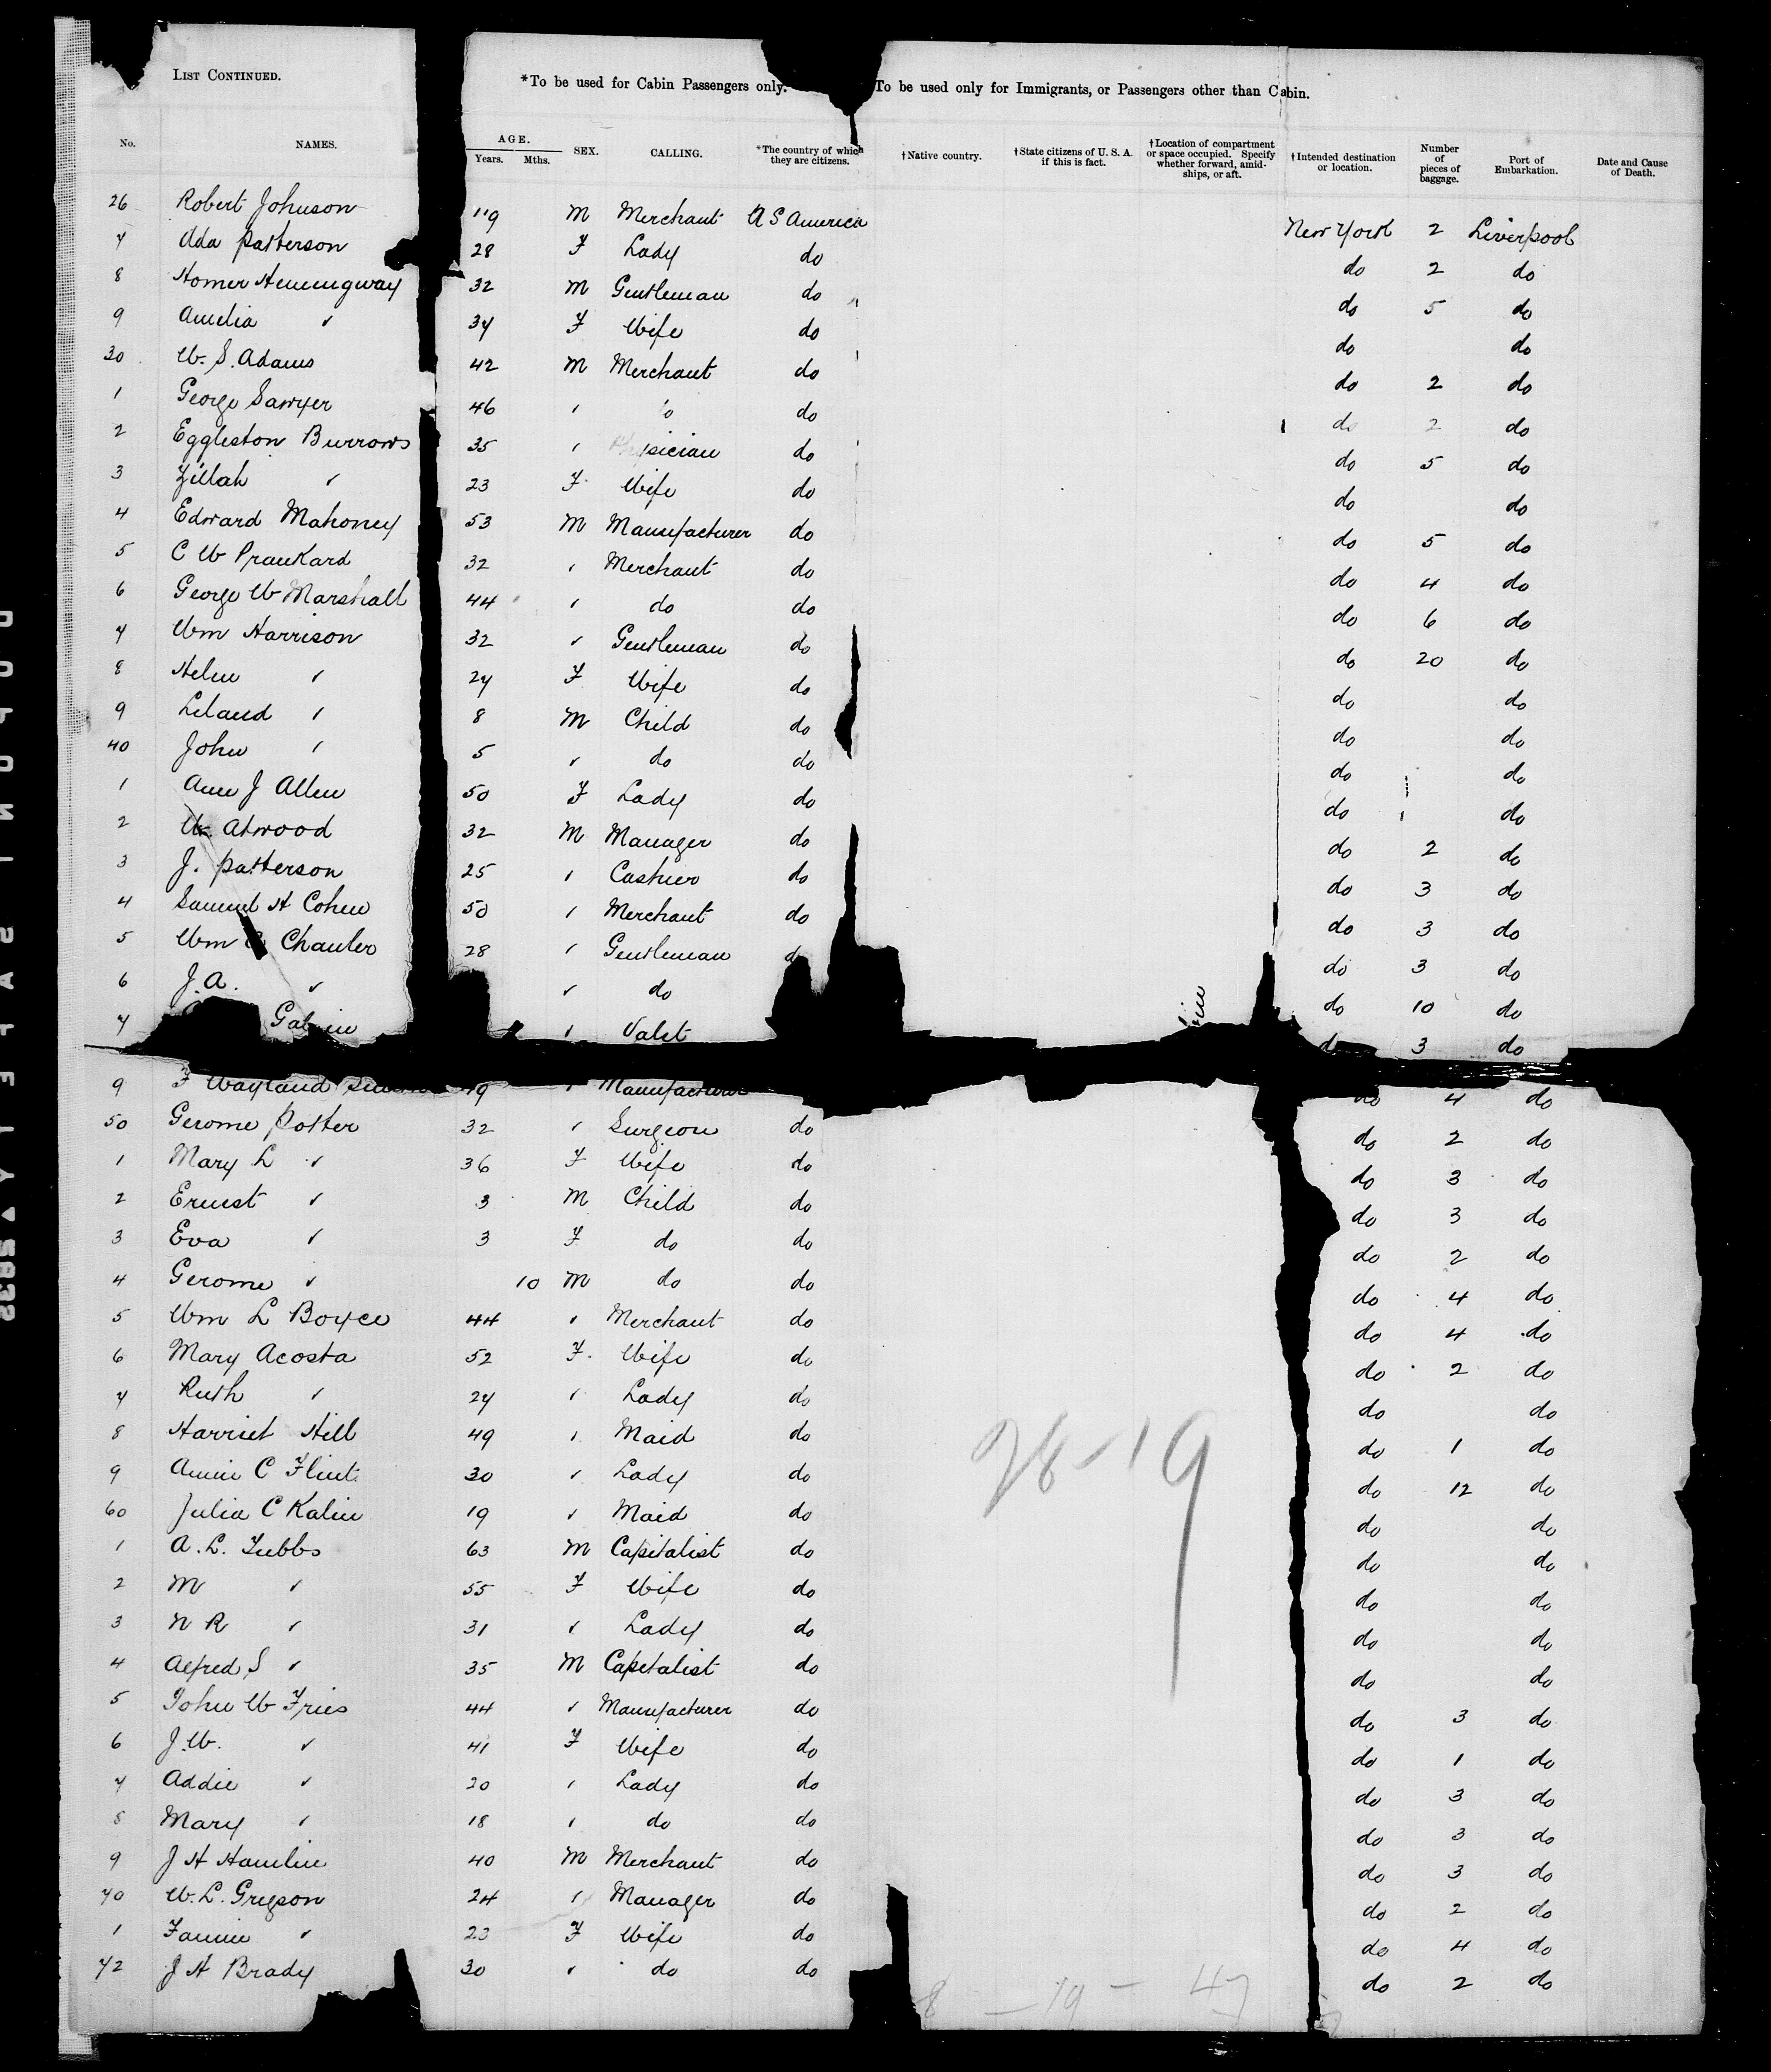 LIST CONTINUED.
*To be used for Cabin Passengers only. To be used only for Immigrants, or Passengers other than Cabin.
No. NAMES. AGE. Years. Mths. SEX. CALLING. *The country of which they are citizens. †Native country. †State citizens of U. S. A. if this is fact. †Location of compartment or space occupied. Specify whether forward, amidships, or aft. †Intended destination or location. Number of pieces of baggage. Port of Embarkation. Date and Cause of Death.
26 Robert Johnson M Merchant U S America New York 2 Liverpool
7 Ada Patterson 28 F Lady do do 2 do
8 Homer Hemingway 32 M Gentleman do do 5 do
9 Amelia " 37 F Wife do do do
30 W. S. Adams 42 M Merchant do do 2 do
1 George Sawyer 46 " do do 2 do
2 Eggleston Burrows 35 " Physician do do 5 do
3 Zillah " 23 F Wife do do do
4 Edward Mahoney 53 M Manufacturer do do 5 do
5 C W Prankard 32 " Merchant do do 4 do
6 George W Marshall 44 " do do do 6 do
7 Wm Harrison 32 " Gentleman do do 20 do
8 Helen " 27 F Wife do do do
9 Leland " 8 M Child do do do
40 John " 5 " do do do do
1 Ann J Allen 50 F Lady do do do
2 W. Atwood 32 M Manager do do 2 do
3 J. Patterson 25 " Cashier do do 3 do
4 Samuel H Cohen 50 " Merchant do do 3 do
5 Wm Chanler 28 " Gentleman do do 3 do
6 J. A. " " do do 10 do
7 " Valet do 3 do
9 F Wayland " Manufacturer do 4 do
50 Gerome Potter 32 " Surgeon do do 2 do
1 Mary L " 36 F Wife do do 3 do
2 Ernest " 3 M Child do do 3 do
3 Eva " 3 F do do do 2 do
4 Gerome " 10 M do do do 4 do
5 Wm L Boyce 44 " Merchant do do 4 do
6 Mary Acosta 52 F Wife do do 2 do
7 Ruth " 27 " Lady do do do
8 Harriet Hill 49 " Maid do do 1 do
9 Annie C Flint 30 " Lady do do 12 do
60 Julia C Kalin 19 " Maid do do do
1 A. L. Tubbs 63 M Capitalist do do do
2 M " 55 F Wife do do do
3 N R " 31 " Lady do do do
4 Alfred S " 35 M Capitalist do do do
5 John W Fries 44 " Manufacturer do do 3 do
6 J. W. " 41 F Wife do do 1 do
7 Addie " 20 " Lady do do 3 do
8 Mary " 18 " do do do 3 do
9 J H Hamlin 40 M Merchant do do 3 do
70 W. L. Gregson 24 " Manager do do 2 do
1 Fannie " 23 F Wife do do 4 do
72 J H Brady 30 " do do do 2 do
28-19
8 - 19 - 47